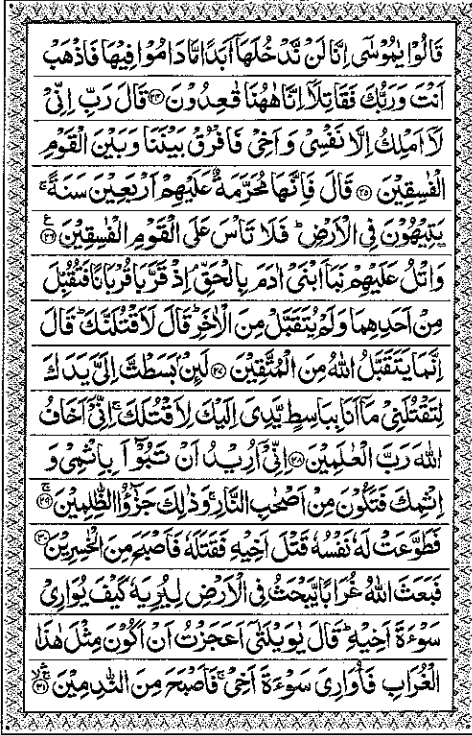 قَالُوْا يٰمُوْسٰۤى اِنَّا لَنْ نَّدْخُلَهَاۤ اَبَدًا مَّا دَامُوْا فِيْهَا فَاذْهَبْ
اَنْتَ وَرَبُّكَ فَقَاتِلَاۤ اِنَّا هٰهُنَا قٰعِدُوْنَ ﴿۲۴﴾ قَالَ رَبِّ اِنِّيْ
لَاۤ اَمْلِكُ اِلَّا نَفْسِيْ وَاَخِيْ فَافْرُقْ بَيْنَنَا وَبَيْنَ الْقَوْمِ
الْفٰسِقِيْنَ ﴿۲۵﴾ قَالَ فَاِنَّهَا مُحَرَّمَةٌ عَلَيْهِمْ اَرْبَعِيْنَ سَنَةً ۚ
يَتِيْهُوْنَ فِي الْاَرْضِ ؕ فَلَا تَاْسَ عَلَى الْقَوْمِ الْفٰسِقِيْنَ ﴿۲۶﴾ ع
وَاتْلُ عَلَيْهِمْ نَبَاَ ابْنَيْ اٰدَمَ بِالْحَقِّ ۘ اِذْ قَرَّبَا قُرْبَانًا فَتُقُبِّلَ
مِنْ اَحَدِهِمَا وَلَمْ يُتَقَبَّلْ مِنَ الْاٰخَرِ ؕ قَالَ لَاَقْتُلَنَّكَ ؕ قَالَ
اِنَّمَا يَتَقَبَّلُ اللّٰهُ مِنَ الْمُتَّقِيْنَ ﴿۲۷﴾ لَئِنْۢ بَسَطْتَّ اِلَيَّ يَدَكَ
لِتَقْتُلَنِيْ مَاۤ اَنَا بِبَاسِطٍ يَّدِيَ اِلَيْكَ لِاَقْتُلَكَ ۚ اِنِّيْۤ اَخَافُ
اللّٰهَ رَبَّ الْعٰلَمِيْنَ ﴿۲۸﴾ اِنِّيْۤ اُرِيْدُ اَنْ تَبُوْٓاَ بِاِثْمِيْ وَ
اِثْمِكَ فَتَكُوْنَ مِنْ اَصْحٰبِ النَّارِ ۚ وَذٰلِكَ جَزٰٓؤُا الظّٰلِمِيْنَ ﴿۲۹﴾ ۚ
فَطَوَّعَتْ لَهٗ نَفْسُهٗ قَتْلَ اَخِيْهِ فَقَتَلَهٗ فَاَصْبَحَ مِنَ الْخٰسِرِيْنَ ﴿۳۰﴾
فَبَعَثَ اللّٰهُ غُرَابًا يَّبْحَثُ فِي الْاَرْضِ لِيُرِيَهٗ كَيْفَ يُوَارِيْ
سَوْءَةَ اَخِيْهِ ؕ قَالَ يٰوَيْلَتٰۤى اَعَجَزْتُ اَنْ اَكُوْنَ مِثْلَ هٰذَا
الْغُرَابِ فَاُوَارِيَ سَوْءَةَ اَخِيْ ۚ فَاَصْبَحَ مِنَ النّٰدِمِيْنَ ﴿۳۱﴾